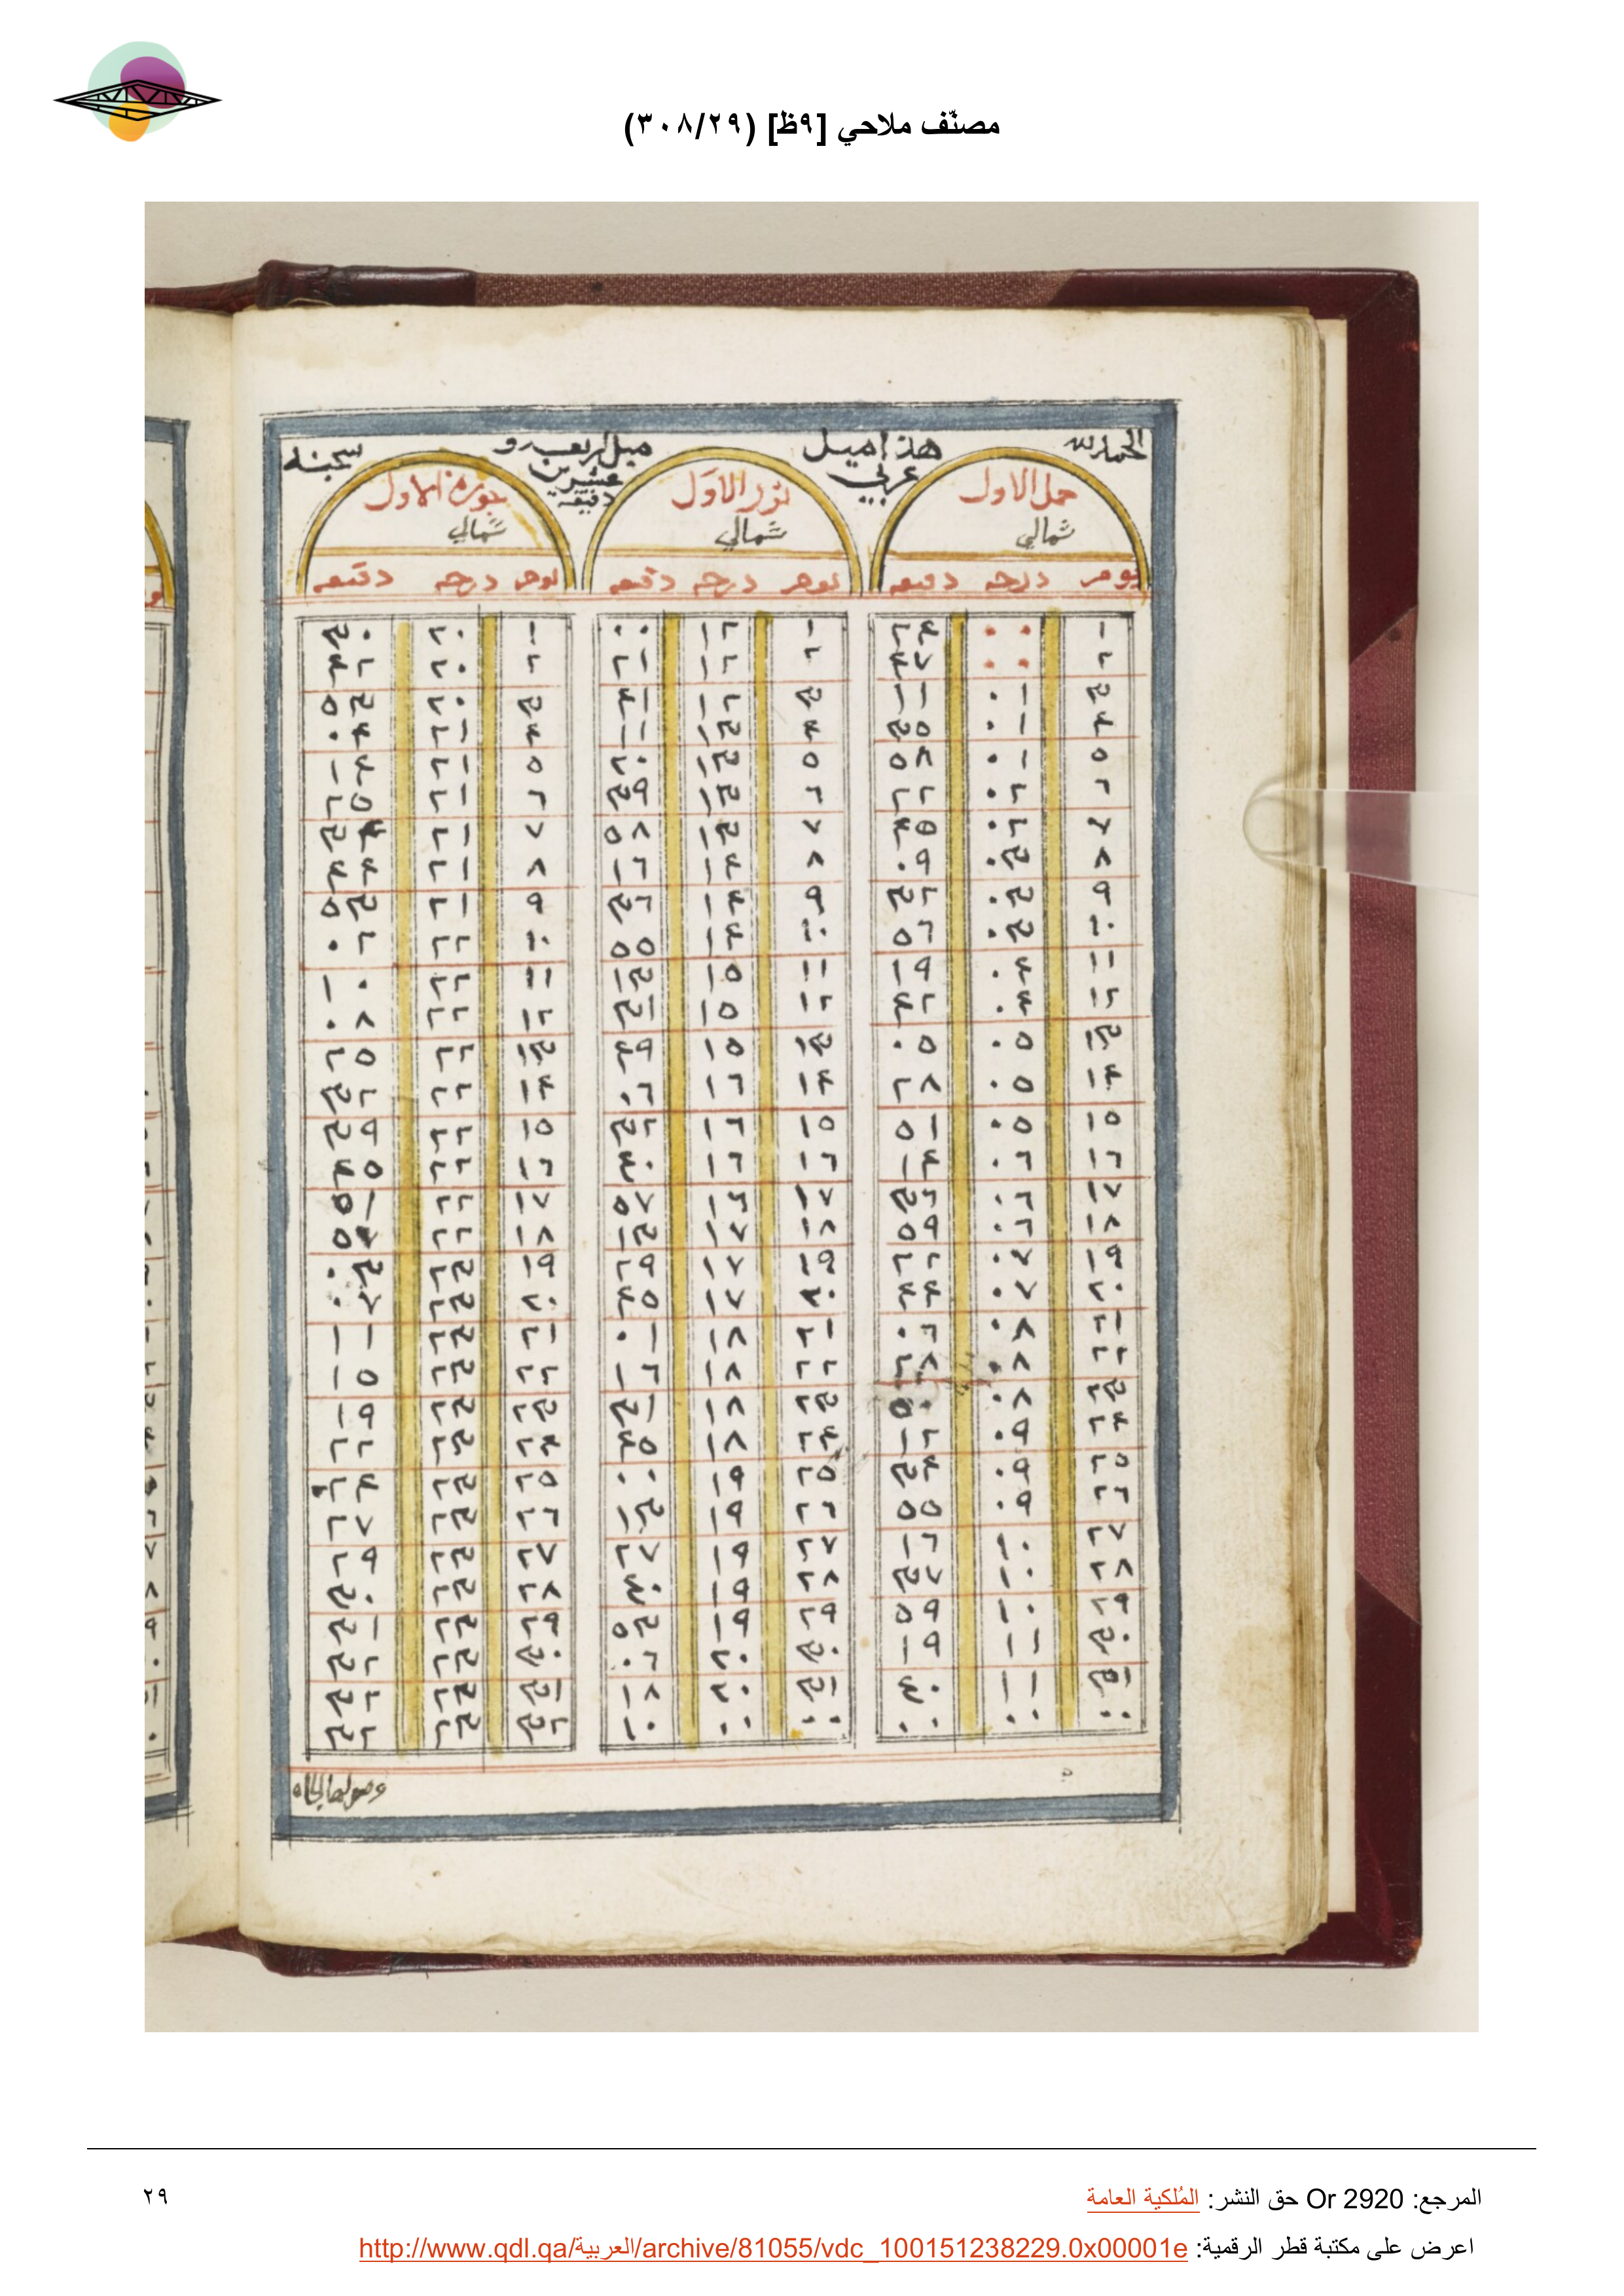 مصنّف ملاحي [٩ظ] (٣٠٨/٢٩)
الحمد لله هذا ميل عربي ميل اربعه و عشرين دقيقه
حمل الاول ثور الاول جوزة الاول
شمالي شمالي شمالي
يوم درجه دقيقه يوم درجه دقيقه يوم درجه دقيقه
١ ٠٠ ٢٤ ١ ١٢ ٠٠ ١ ٢٠ ٣٠
٢ ٠٠ ٤٧ ٢ ١٢ ٢١ ٢ ٢٠ ٤٢
٣ ٠١ ١١ ٣ ١٢ ٤١ ٣ ٢٠ ٥٣
٤ ٠١ ٥٣ ٤ ١٣ ١١ ٤ ٢١ ٠٤
٥ ٠١ ٥٨ ٥ ١٣ ٢٠ ٥ ٢١ ١٤
٦ ٠٢ ٢٢ ٦ ١٣ ٣٩ ٦ ٢١ ٢٥
٧ ٠٢ ٤٥ ٧ ١٣ ٥٨ ٧ ٢١ ٣٤
٨ ٠٣ ٠٩ ٨ ١٤ ١٦ ٨ ٢١ ٤٤
٩ ٠٣ ٣٢ ٩ ١٤ ٣٦ ٩ ٢١ ٥٣
١٠ ٠٣ ٥٦ ١٠ ١٤ ٥٥ ١٠ ٢٢ ٠٢
١١ ٠٤ ١٩ ١١ ١٥ ١٣ ١١ ٢٢ ١٠
١٢ ٠٤ ٤٢ ١٢ ١٥ ٣١ ١٢ ٢٢ ٠٨
١٣ ٠٥ ٠٥ ١٣ ١٥ ٤٩ ١٣ ٢٢ ٢٥
١٤ ٠٥ ٢٨ ١٤ ١٦ ٠٦ ١٤ ٢٢ ٣٢
١٥ ٠٥ ٥١ ١٥ ١٦ ٣٢ ١٥ ٢٢ ٣٩
١٦ ٠٦ ١٤ ١٦ ١٦ ٤٠ ١٦ ٢٢ ٤٥
١٧ ٠٦ ٣٦ ١٧ ١٦ ٥٧ ١٧ ٢٢ ٥١
١٨ ٠٦ ٥٩ ١٨ ١٧ ١٣ ١٨ ٢٢ ٥٧
١٩ ٠٧ ٢٢ ١٩ ١٧ ٢٩ ١٩ ٢٣ ٠٣
٢٠ ٠٧ ٤٤ ٢٠ ١٧ ٤٥ ٢٠ ٢٣ ٠٧
٢١ ٠٨ ٠٦ ٢١ ١٨ ٠١ ٢١ ٢٣ ١١
٢٢ ٠٨ ٢٨ ٢٢ ١٨ ١٦ ٢٢ ٢٣ ١٥
٢٣ ٠٨ ٥٠ ٢٣ ١٨ ٣١ ٢٣ ٢٣ ١٩
٢٤ ٠٩ ١٢ ٢٤ ١٨ ٤٥ ٢٤ ٢٣ ٢٢
٢٥ ٠٩ ٣٤ ٢٥ ١٩ ٠٠ ٢٥ ٢٣ ٢٤
٢٦ ٠٩ ٥٥ ٢٦ ١٩ ١٣ ٢٦ ٢٣ ٢٧
٢٧ ١٠ ١٦ ٢٧ ١٩ ٢٧ ٢٧ ٢٣ ٢٩
٢٨ ١٠ ٣٧ ٢٨ ١٩ ٤٠ ٢٨ ٢٣ ٣٠
٢٩ ١٠ ٥٩ ٢٩ ١٩ ٥٣ ٢٩ ٢٣ ٣١
٣٠ ١١ ١٩ ٣٠ ٢٠ ٠٦ ٣٠ ٢٣ ٣٢
٣١ ١١ ٤٠ ٣١ ٢٠ ١٨ ٣١ ٢٣ ٣٢
٠٠ ٠٠ ٠٠ ٠٠ ٠٠ ١٠ ٣٢ ٢٣ ٣٢
المرجع: Or 2920 حق النشر: المُلكية العامة ٢٩
اعرض على مكتبة قطر الرقمية: http://www.qdl.qa/العربية/archive/81055/vdc_100151238229.0x00001e